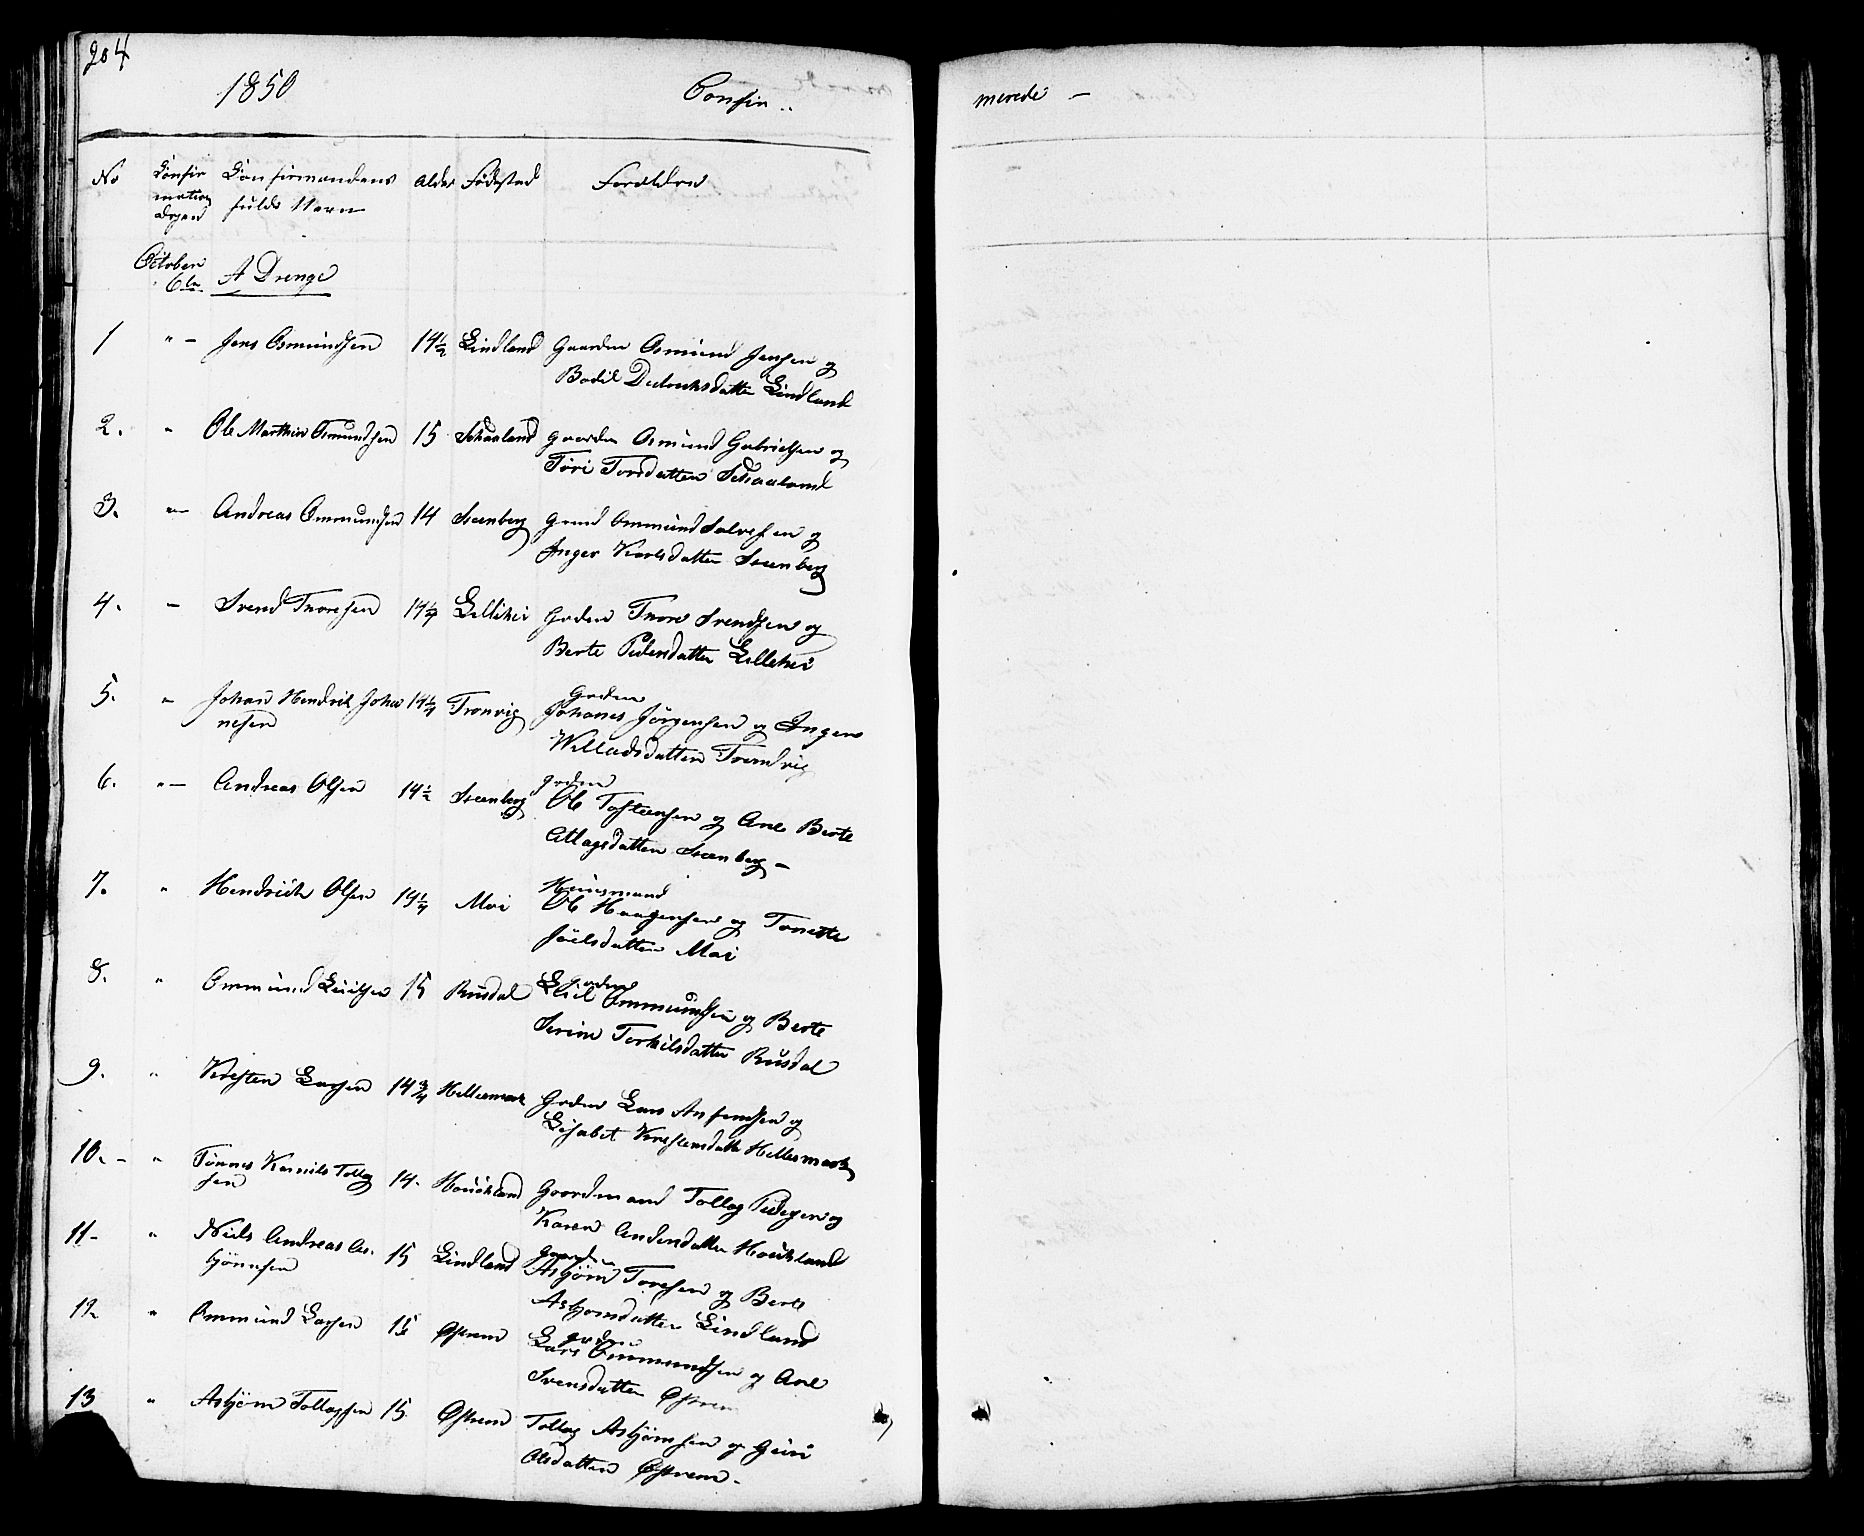 204
1850 Confir..
merede -
No Confir Confirmandens Alder Fødested Forældre
mations fulde Navn
dagen
October
6te A Drenge
1 " - Jens Osmundsen 14½ Lindland Gaardm Osmund Jensen og
Bodil Didriksdatter Lindland
2. " Ole Marthin Osmundsen 15 Schaaland gaardm Osmund Gabrielsen og
Tøri Torsdatter Schaaland
3. " - Andreas Ommundsen 14 Steenberg Ommund Salvesen og
Inger Karlsdatter Steenberg
4. - Svend Thoresen 14¼ Lillehei Grdm Thore Svendsen og
Berte Pedersdatter Lillehei
5. " Johan Hendrik Joha 14¼ Tronvig Grdm
nesen Johanes Jørgensen og Inger
Willadsdatter Trondvig
6. " - Andreas Olsen 14½ Steenberg grdm
Ole Tostensen og Ane Berte
Atlagsdatter Steenberg -
7. " Hendrich Olsen 14¼ Moi Huusmand
Ole Haagensen og Tonette
Joelsdatter Moi
8. " Ommund 15 Rusdal grdm
Ommundsen og Berte
Serine Torkilsdatter Rusdal
9. " Kresten Larsen 14¾ Hellesmark Grdm Lars og
Lisabet Krestensdatter Hellesmark
10. - " Tønnes Kornils Tollag 14. Houkland Gaardmand Tollag Pedersen og
sen Karen Andersdatter Houkland
11 - " Niels Andreas As- 15 Lindland Gaardm
bjørnsen Asbjørn Toresen og Berte
Asbjornsdatter Lindland
12 " Ommund Larsen 15 Østrem grdm
Lars Ommundsen og Ane
Svensdatter Østrem
13 " Asbjørn Tollagsen 15 Østrem Tollag Asbjørnsen og Guri
Olsdatter Østrem -